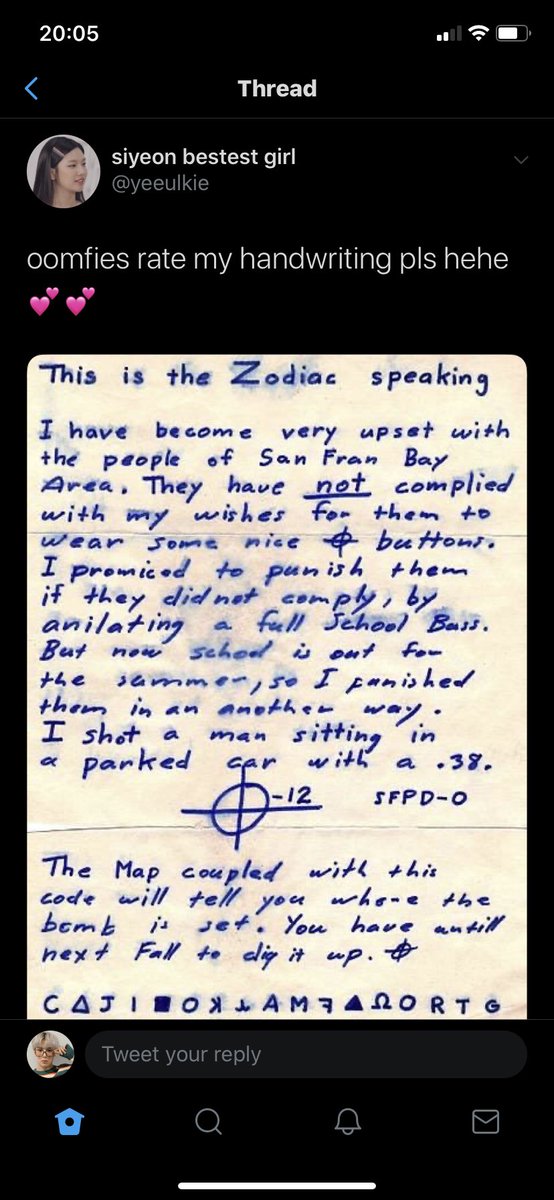 20:05
Thread
siyeon bestest girl
@yeeulkie
oomfies rate my handwriting pls hehe
💕 💕
This is the Zodiac speaking
I have become very upset with
the people of San Fran Bay
Area. They have not complied
with my wishes for them to
wear some nice ⌖ buttons.
I promiced to punish them
if they did not comply, by
anilating a full School Buss.
But now school is out for
the summer, so I punished
them in an another way.
I shot a man sitting in
a parked car with a .38.
⌖-12 SFPD-0
The Map coupled with this
code will tell you where the
bomb is set. You have untill
next Fall to dig it up. ⌖
C Δ J I ■ O ꓘ ⅄ A M ꟻ ▲ Ω O R T G
Tweet your reply